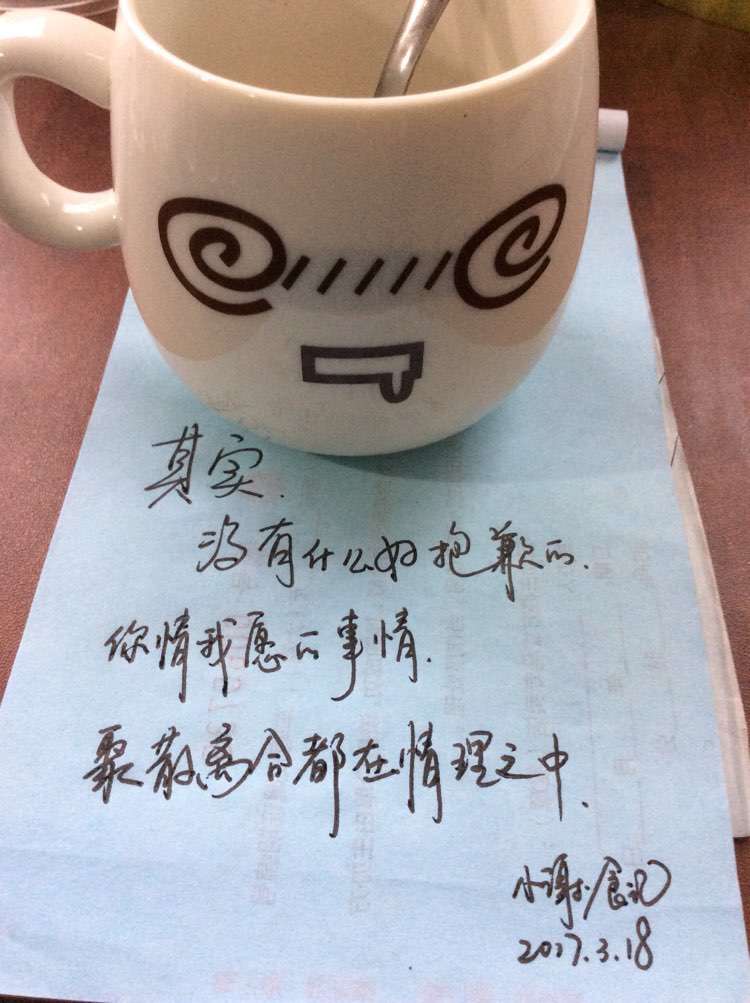 其实.
没有什么好抱歉的.
你情我愿的事情.
聚散离合都在情理之中.
小谢食记
2017.3.18